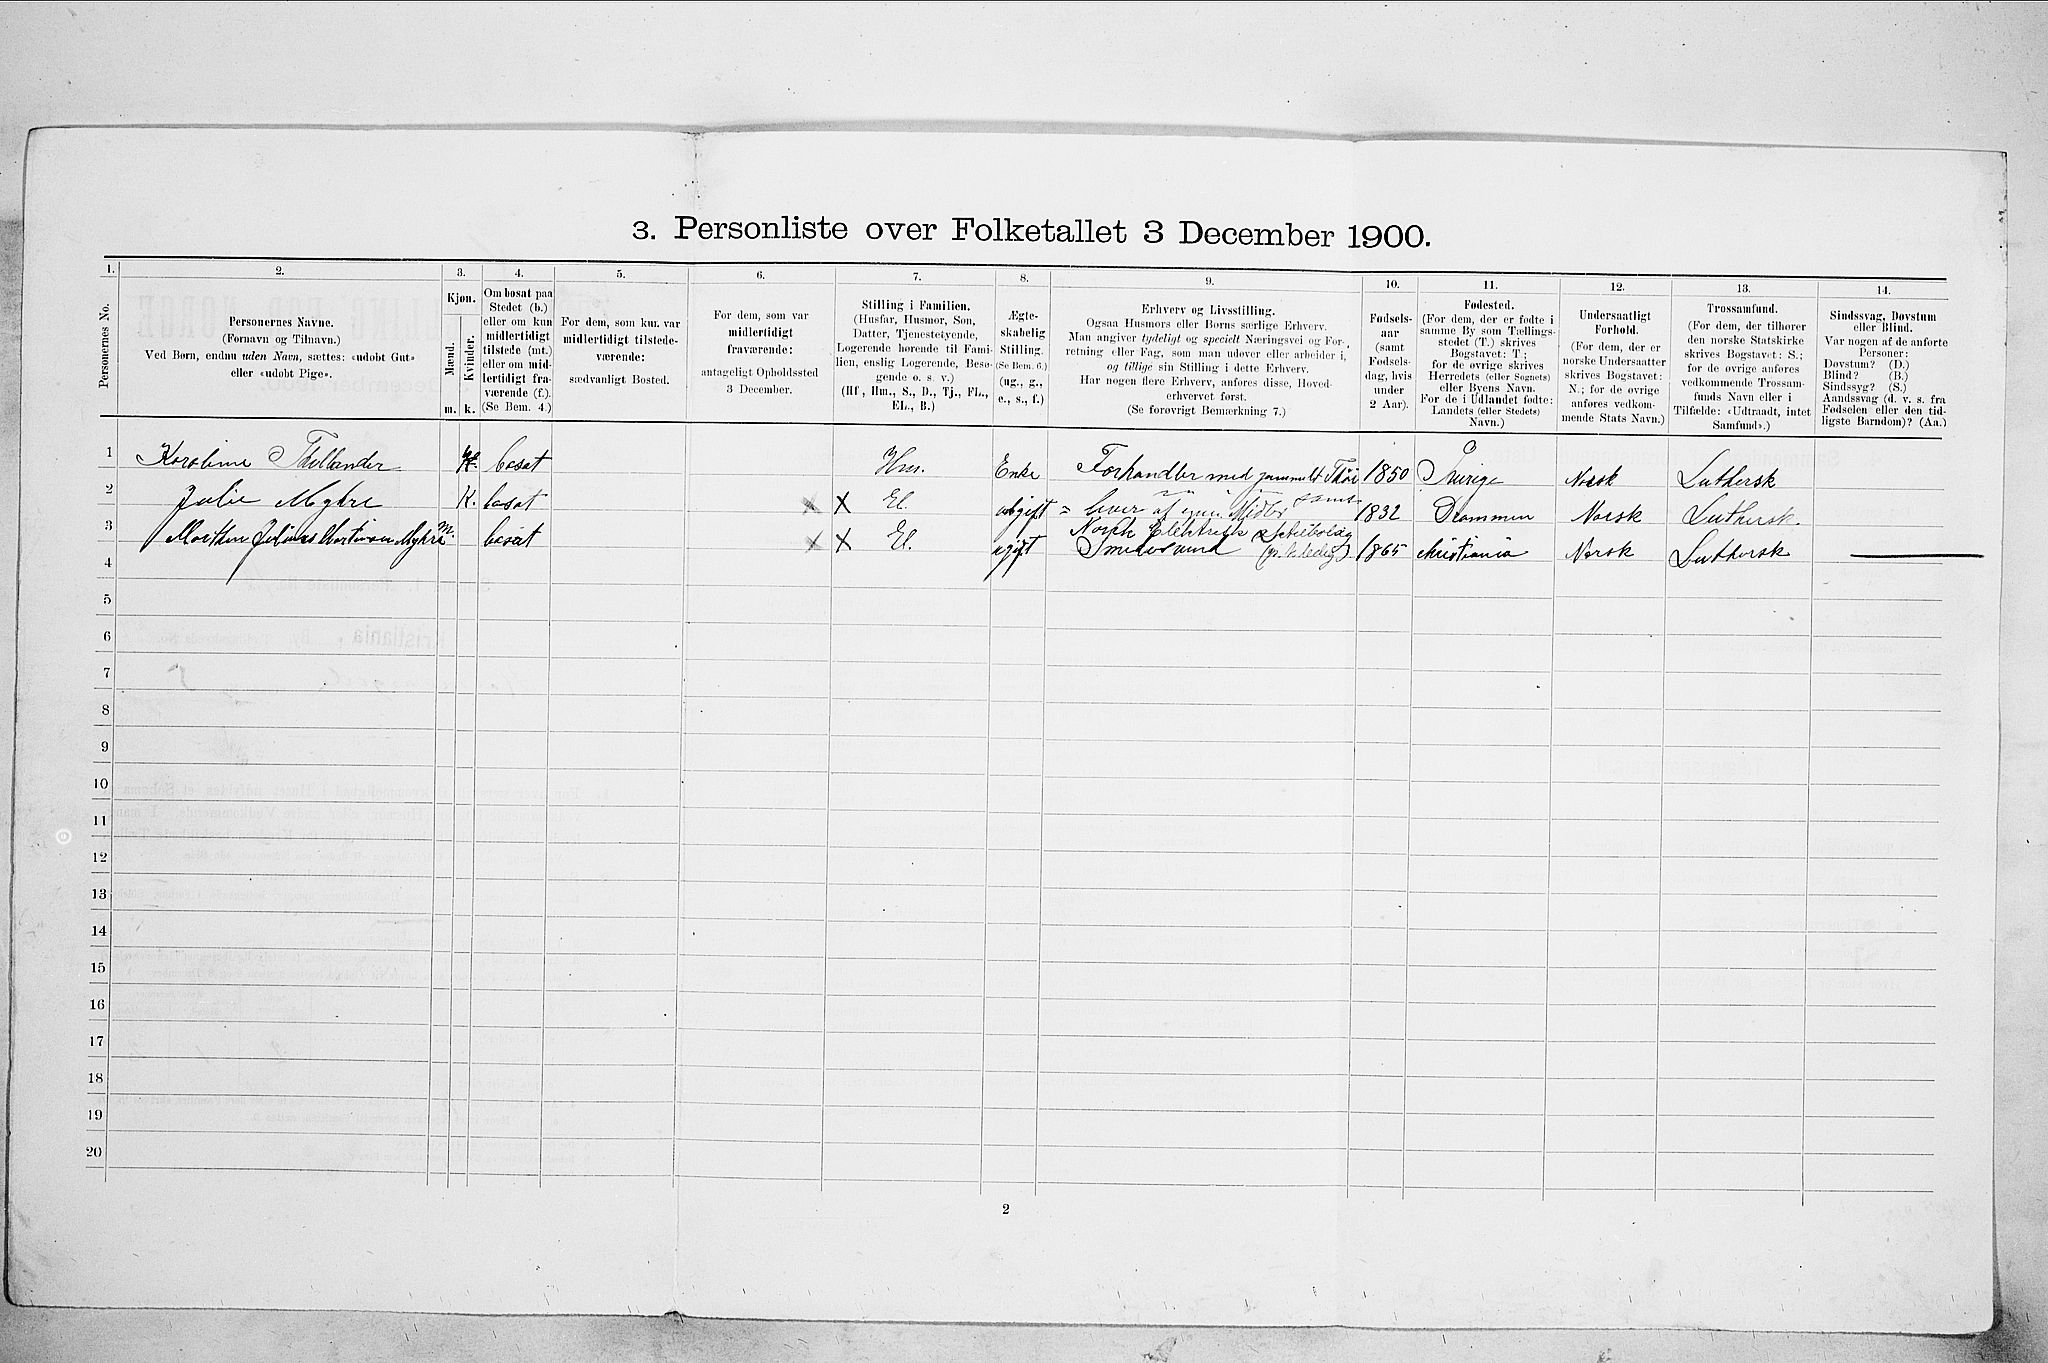 3. Personliste over Folketallet 3 December 1900.
1. 2. 3. 4. 5. 6. 7. 8. 9. 10. 11. 12. 13. 14.
Personernes No.
Personernes Navne.
(Fornavn og Tilnavn.)
Ved Børn, endnu uden Navn, sættes: «udøbt Gut»
eller «udøbt Pige».
Kjøn.
Mænd.
Kvinder.
m. k.
Om bosat paa
Stedet (b.)
eller om kun
midlertidigt
tilstede (mt.)
eller om mid-
lertidigt fra-
værende (f.).
(Se Bem. 4.)
For dem, som kun var
midlertidigt tilstede-
værende:
sædvanligt Bosted.
For dem, som var
midlertidigt
fraværende:
antageligt Opholdssted
3 December.
Stilling i Familien.
(Husfar, Husmor, Søn,
Datter, Tjenestetyende,
Logerende hørende til Fami-
lien, enslig Logerende, Besø-
gende o. s. v.)
(Hf, Hm., S., D., Tj., FL.,
EL., B.)
Ægte-
skabelig
Stilling.
(Se Bem. 6.)
(ug., g.,
e., s., f.)
Erhverv og Livsstilling.
Ogsaa Husmors eller Børns særlige Erhverv.
Man angiver tydeligt og specielt Næringsvei og For-
retning eller Fag, som man udøver eller arbeider i,
og tillige sin Stilling i dette Erhverv.
Har nogen flere Erhverv, anføres disse, Hoved-
erhvervet først.
(Se forøvrigt Bemærkning 7.)
Fødsels-
aar
(samt
Fødsels-
dag, hvis
under
2 Aar).
Fødested.
(For dem, der er fødte i
samme By som Tællings-
stedet (T.) skrives
Bogstavet: T;
for de øvrige skrives
Herredets (eller Sognets)
eller Byens Navn.
For de i Udlandet fødte:
Landets (eller Stedets)
Navn.)
Undersaatligt
Forhold.
(For dem, der er
norske Undersaatter
skrives Bogstavet:
N.; for de øvrige
anføres vedkom-
mende Stats Navn.)
Trossamfund.
(For dem, der tilhører
den norske Statskirke
skrives Bogstavet: S.;
for de øvrige anføres
vedkommende Trossam-
funds Navn eller i
Tilfælde: «Udtraadt, intet
Samfund».)
Sindssvag, Døvstum
eller Blind.
Var nogen af de anførte
Personer:
Døvstum? (D.)
Blind? (B.)
Sindssyg? (S.)
Aandssvag (d. v. s. fra
Fødselen eller den tid-
ligste Barndom)? (Aa.)
1 Karoline Thellander k. bosat Hm. Enke Forhandler med gammelt 1850 Sverige Norsk Luthersk
2 Julie Myhre K. bosat X X El. ugift = lever af egne Midler samt 1832 Drammen Norsk Luthersk.
3 Morthen Julius Martinsen Myhre m. bosat X X El. ugift Norsk Elektrisk Smedsvend 1865 christiania Norsk Luthersk
4
5
6
7
8
9
10
11
12
13
14
15
16
17
18
19
20
2